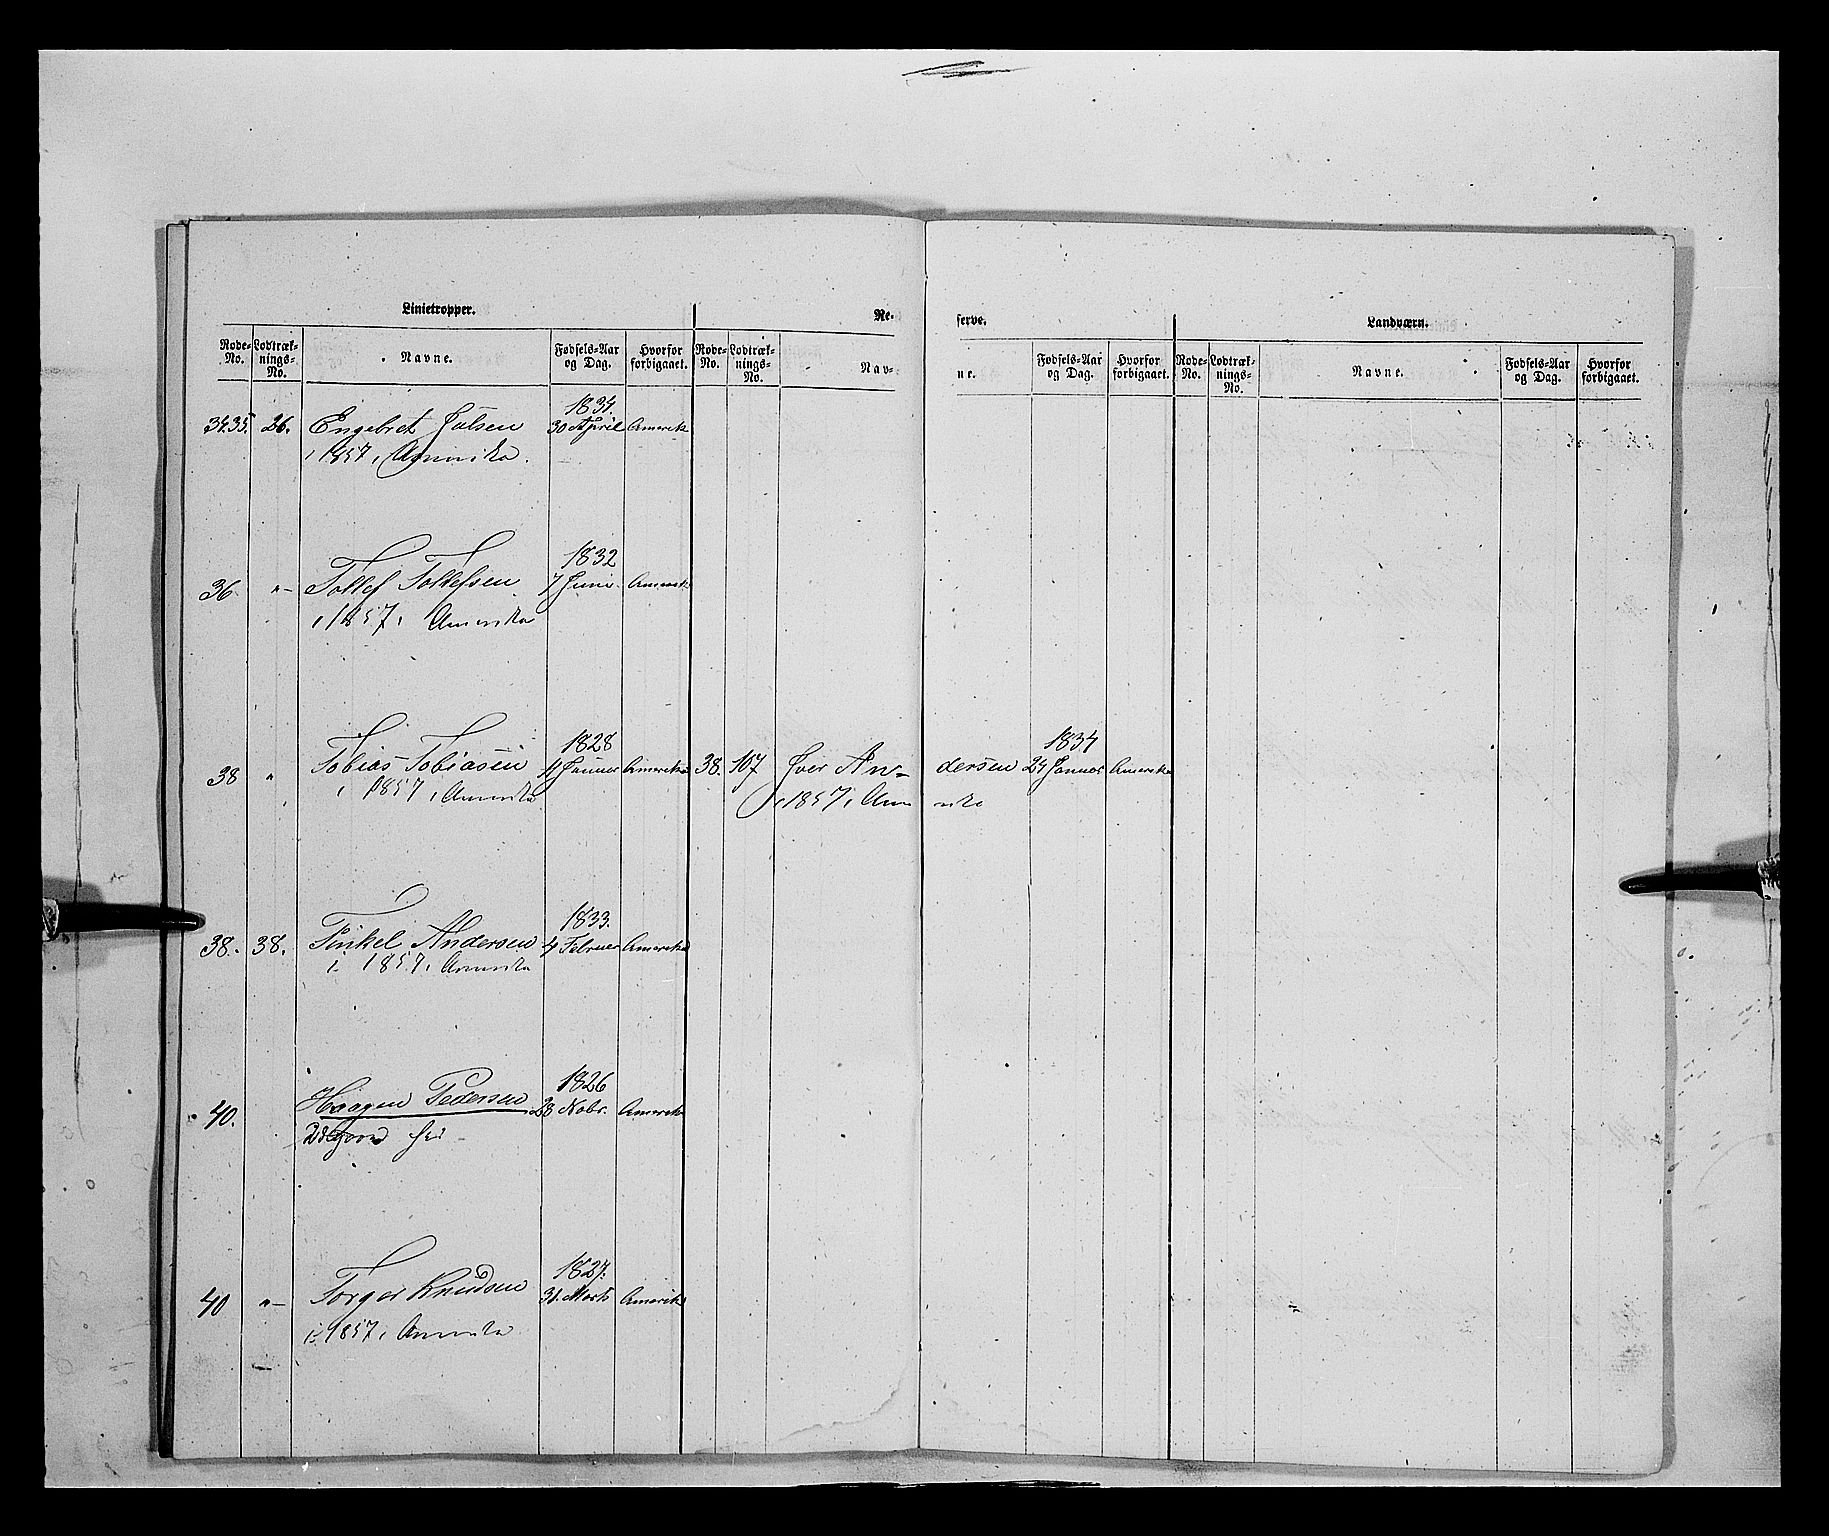 Linietropper.
Rode-No. Lodtræk-nings-No. Navne. Fødsels-Aar og Dag. Hvorfor forbigaaet.
34.35. 26. Engebret Joelsen 1834. 30 April Amerika
i 1857 i Amerika.
36. "- Tollef Tollefsen 1832 7 Juni. Amerika
i 1857 i Amerika
38 " Tobias Tobiasen 1828 11 Januar Amerika
i 1857 i Amerika
38. 38. Tinkel Andersen 1833. 4 Februar Amerika
i 1857 i Amerika
40. Haagen Pedersen 1826 28 Nobr. Amerika
40 "- Torger Knudsen 1827. 31. Marts Amerika
i 1857 i Amerika
Re-serve.
Rode-No. Lodtræk-nings-No. Nav-ne. Fødsels-Aar og Dag. Hvorfor forbigaaet.
38. 107 Iver An-dersen 1834 24 Januar Amerika
i 1857 i Ame rika
Landværn.
Rode-No. Lodtræk-nings-No. Navne. Fødsels-Aar og Dag. Hvorfor forbigaaet.